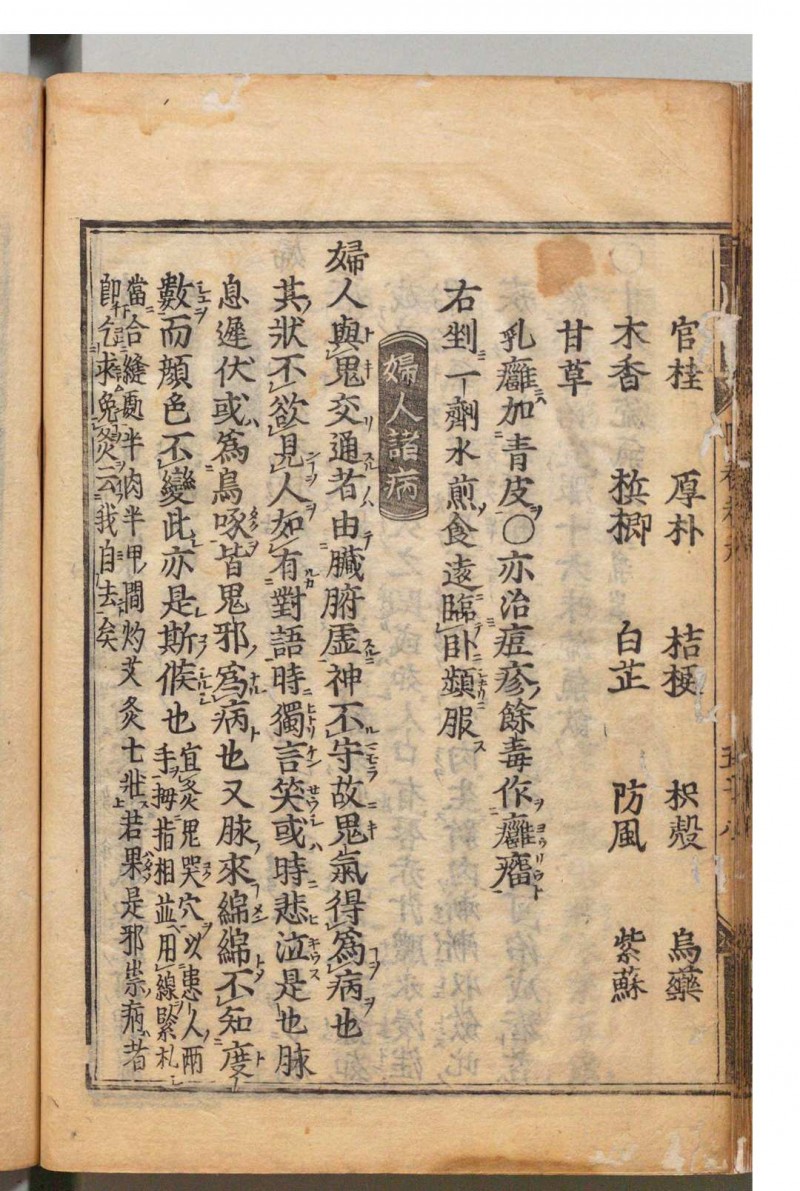 官桂　厚朴　桔梗　枳殼　烏藥
木香　檳榔　白芷　防風　紫蘇
甘草
乳癰加青皮〇亦治痘疹餘毒作癰瘤
右剉一劑水煎食遠臨臥頻服
婦人諸病
婦人與鬼交通者由臟腑虛神不守故鬼氣得爲病也
其狀不欲見人如有對語時獨言笑或時悲泣是也脉
息遲伏或爲鳥啄皆鬼邪爲病也又脉來綿綿不知度
數而顔色不變此亦是斯候也宜灸鬼哭穴以患人兩
手拇指相並用線緊札
當合縫處半肉半甲間灼艾灸七壯若果是邪祟病者
即乞求免灸云我自去矣